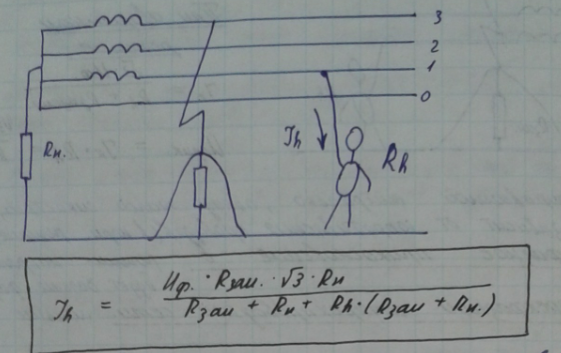 3
2
1
0
Rн.
Jh
Rh
Jh = Uф. · Rзам. · √3 · Rн / Rзам + Rн + Rh · (Rзам + Rн.)